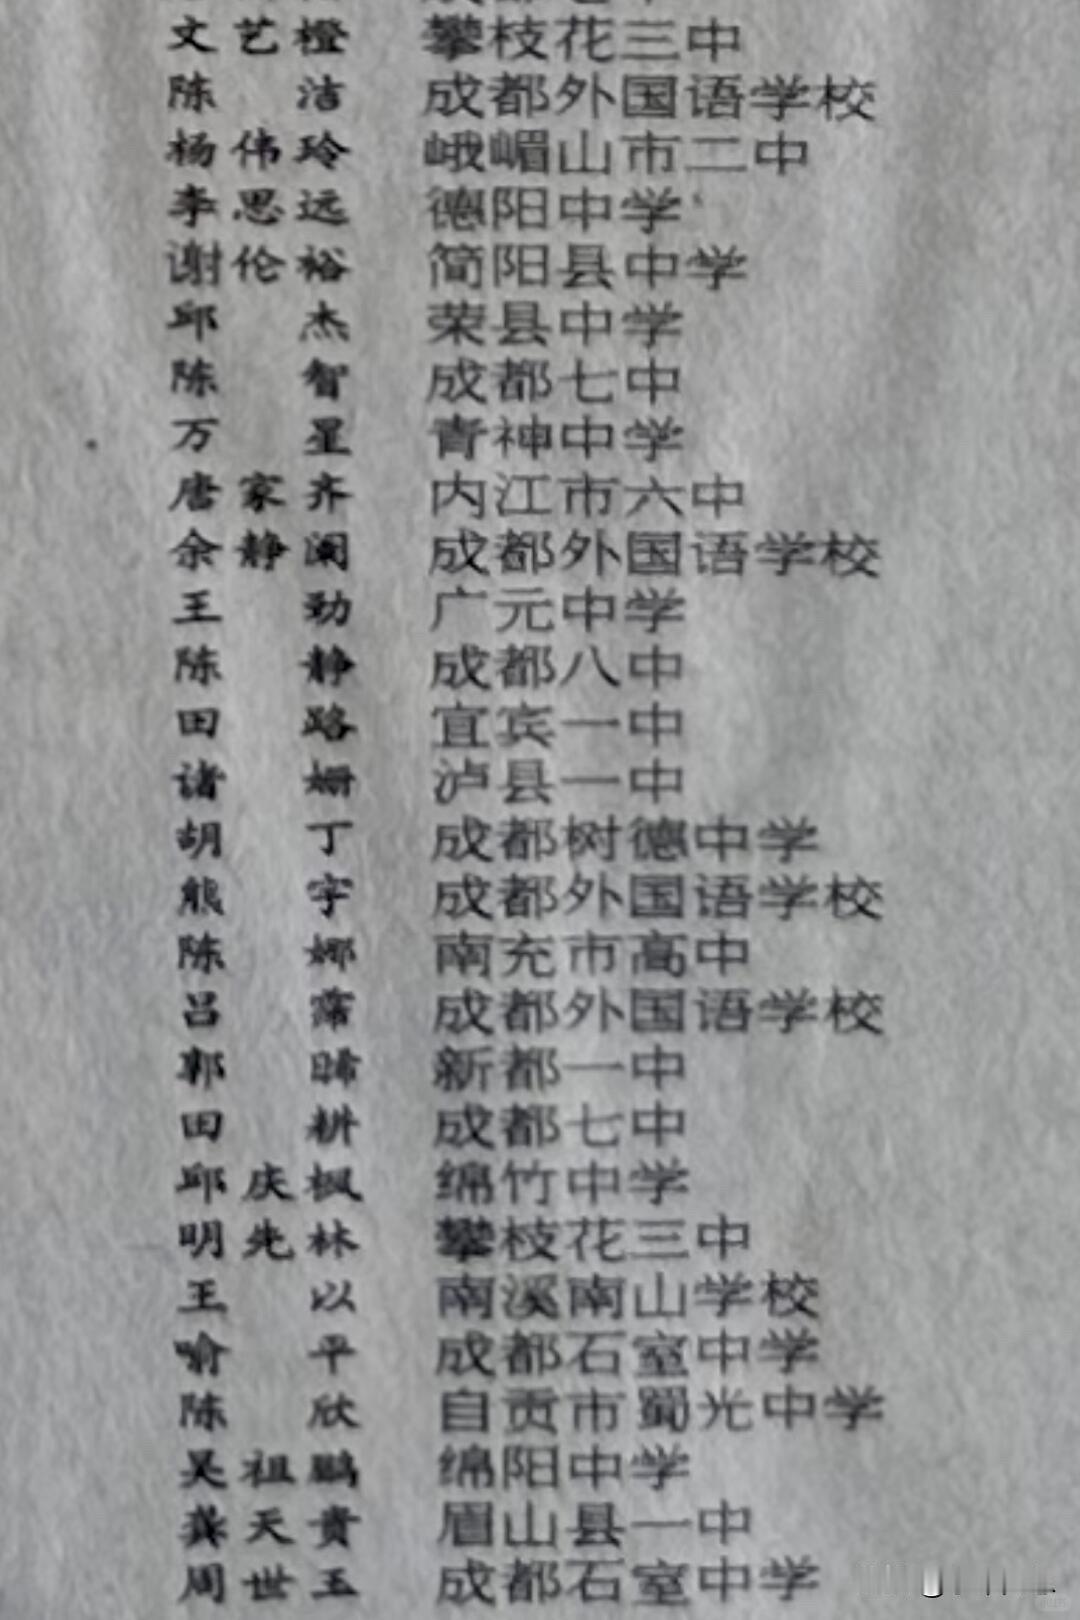 文艺橙 攀枝花三中
陈洁 成都外国语学校
杨伟玲 峨嵋山市二中
李思远 德阳中学
谢伦裕 简阳县中学
邱杰 荣县中学
陈智 成都七中
万星 青神中学
唐家齐 内江市六中
余静阑 成都外国语学校
王劲 广元中学
陈静 成都八中
田路 宜宾一中
诸姗 泸县一中
胡丁 成都树德中学
熊宇 成都外国语学校
陈娜 南充市高中
吕 成都外国语学校
郭晞 新都一中
田耕 成都七中
邱庆枫 绵竹中学
明先林 攀枝花三中
王以 南溪南山学校
喻平 成都石室中学
陈欣 自贡市蜀光中学
吴祖鹏 绵阳中学
龚天贵 眉山县一中
周世玉 成都石室中学